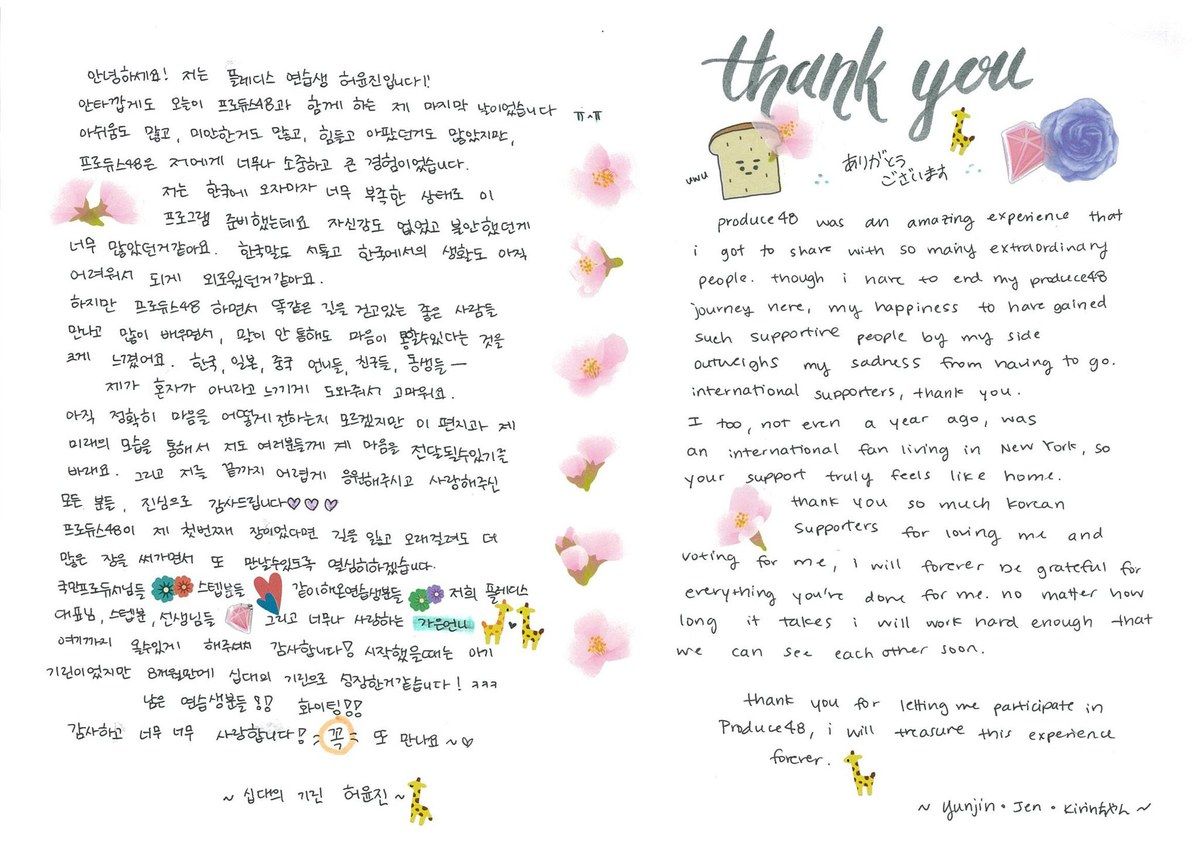 안녕하세요! 저는 플레디스 연습생 허윤진입니다!!
안타깝게도 오늘이 프로듀스48과 함께 하는 제 마지막 날이었습니다 ㅠ^ㅠ
아쉬움도 많고, 미안한거도 많고, 힘들고 아팠던거도 많았지만,
프로듀스48은 저에게 너무나 소중하고 큰 경험이었습니다.
저는 한국에 오자마자 너무 부족한 상태로 이
프로그램 준비했는데요 자신감도 없었고 불안했던게
너무 많았던거같아요. 한국말도 서툴고 한국에서의 생활도 아직
어려워서 되게 외로웠던거같아요.
하지만 프로듀스48 하면서 똑같은 길을 걷고있는 좋은 사람들
만나고 많이 배우면서, 말이 안 통해도 마음이 통할수있다는 것을
크게 느꼈어요. 한국, 일본, 중국 언니들, 친구들, 동생들—
제가 혼자가 아니라고 느끼게 도와줘서 고마워요.
아직 정확히 마음을 어떻게 전하는지 모르겠지만 이 편지과 제
미래의 모습을 통해서 저도 여러분들께 제 마음을 전달될수있기를
바래요. 그리고 저를 끝까지 어렵게 응원해주시고 사랑해주신
모든 분들, 진심으로 감사드립니다♡♡♡
프로듀스48이 제 첫번째 장이었다면 길을 잃고 오래걸려도 더
많은 장을 써가면서 또 만날수있도록 열심히하겠습니다.
국민프로듀서님들 스텝분들 같이해온연습생분들 저희 플레디스
대표님, 스텝분, 선생님들 그리고 너무나 사랑하는 가은언니
여기까지 올수있게 해주셔서 감사합니다! 시작했을때는 아기
기린이었지만 8개월만에 십대의 기린으로 성장한거같습니다! ㅋㅋㅋ
남은 연습생분들!! 화이팅!!
감사하고 너무 너무 사랑합니다! 꼭 또 만나요~♡
~ 십대의 기린 허윤진 ~
thank you
uwu
ありがとう
ございます
produce48 was an amazing experience that
i got to share with so many extraordinary
people. though i have to end my produce48
journey here, my happiness to have gained
such supportive people by my side
outweighs my sadness from having to go.
international supporters, thank you.
I too, not even a year ago, was
an international fan living in New York, so
your support truly feels like home.
thank you so much korean
supporters for loving me and
voting for me, i will forever be grateful for
everything you're done for me. no matter how
long it takes i will work hard enough that
we can see each other soon.
thank you for letting me participate in
Produce48, i will treasure this experience
forever.
~ Yunjin • Jen • Kirinちゃん ~